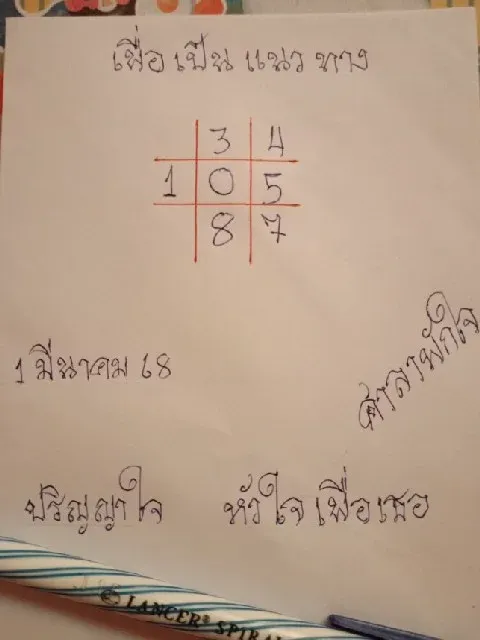 เพื่อเป็นแนวทาง
3 4
1 0 5
8 7
ศาลาพักใจ
1 มีนาคม 68
ปริญญาใจ หัวใจเพื่อเธอ
© LANCER® SPIRAL